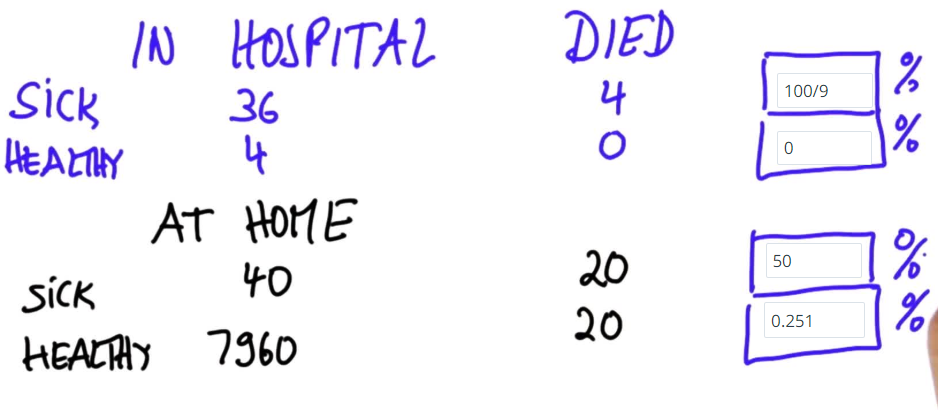 IN HOSPITAL DIED
SICK 36 4 100/9 %
HEALTHY 4 0 0 %
AT HOME
SICK 40 20 50 %
HEALTHY 7960 20 0.251 %